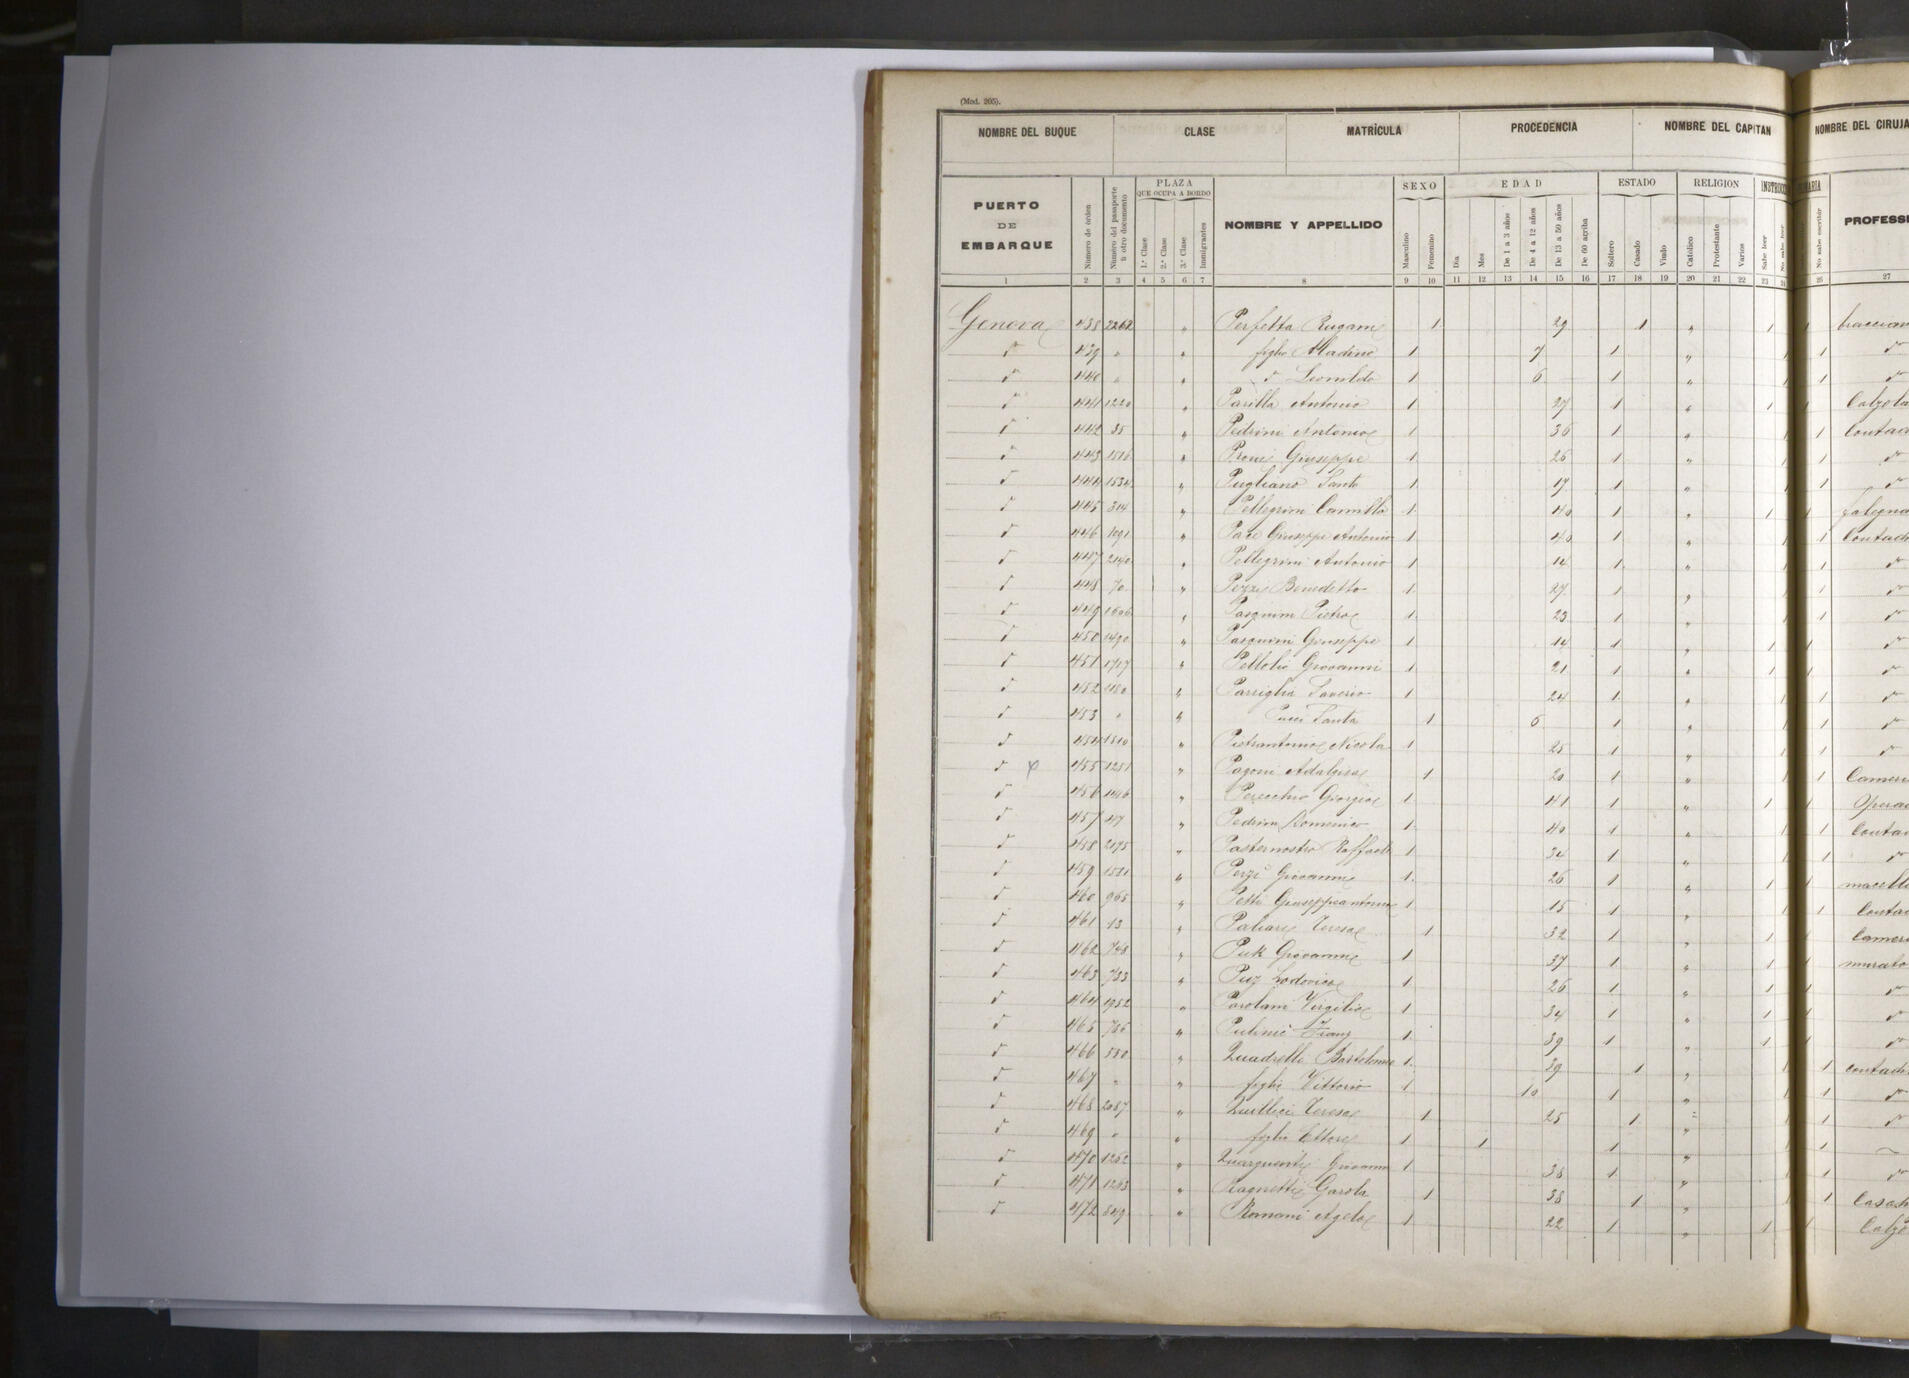 (Mod. 205).
NOMBRE DEL BUQUE CLASE MATRÍCULA PROCEDENCIA NOMBRE DEL CAPITAN NOMBRE DEL CIRUJA
PUERTO DE EMBARQUE Número de órden Número del pasaporte ú otro documento PLAZA QUE OCUPA A BORDO 1.ª Clase 2.ª Clase 3.ª Clase Inmigrantes NOMBRE Y APELLIDO SEXO Masculino Femenino EDAD Dia Mes De 1 a 3 años De 4 a 12 años De 13 a 50 años De 60 arriba ESTADO Soltero Casado Viudo RELIGION Católico Protestante Varios Sabe leer No sabe leer No sabe escribir PROFESI
1 2 3 4 5 6 7 8 9 10 11 12 13 14 15 16 17 18 19 20 21 22 23 24 26 27
Genova 438 2262 " Perfetta 1 29 1 " 1 1
d° 439 " " figlio 1 7 1 " 1 1 d°
d° 440 " " d° Leonildo 1 6 1 " 1 1 d°
d° 441 1220 " Parilla Antonio 1 27 1 " 1 1 Calzola
d° 442 35 " Pedrini Antonio 1 36 1 " 1 1 Contad
d° 443 1516 " Giuseppe 1 26 1 " 1 1 d°
d° 444 1534 " Pugliano Santo 1 17 1 " 1 1 d°
d° 445 314 " Pellegrini Camillo 1 40 1 " 1 1 falegna
d° 446 1091 " Pace Giuseppe Antonio 1 40 1 " 1 1 Contad
d° 447 2140 " Pellegrini Antonio 1 14 1 " 1 1 d°
d° 448 70 " Benedetto 1 27 1 " 1 1 d°
d° 449 1606 " Pasquini Pietro 1 23 1 " 1 1 d°
d° 450 1490 " Pasquini Giuseppe 1 14 1 " 1 1 d°
d° 451 1717 " Giovanni 1 21 1 " 1 1 d°
d° 452 1180 " Saverio 1 24 1 " 1 1 d°
d° 453 " " Santa 1 6 1 " 1 1 d°
d° 454 1810 " Pietrantonio Nicola 1 25 1 " 1 1 d°
d° 455 1251 " Pagoni Adalgisa 1 20 1 " 1 1 Cameri
d° 456 " Giorgio 1 41 1 " 1 1 Opera
d° 457 47 " Pedrini Domenico 1 40 1 " 1 1 Conta
d° 458 2195 " Pasternostro Raffaele 1 34 1 " 1 1 d°
d° 459 " Giovanni 1 26 1 " 1 1 macell
d° 460 965 " Petti Giuseppeantonio 1 15 1 " 1 1 Conta
d° 461 13 " Teresa 1 32 1 " 1 1 Camer
d° 462 748 " Puk Giovanni 1 37 1 " 1 1 murato
d° 463 733 " Puz Lodovico 1 26 1 " 1 1 d°
d° 464 1952 " Parolani Virgilio 1 34 1 " 1 1 d°
d° 465 " Franz 1 39 1 " 1 1 d°
d° 466 530 " Quadrelli Bartolomeo 1 39 1 " 1 1 contad
d° 467 " " figlio Vittorio 1 10 1 " 1 1 d°
d° 468 2087 " Quillici Teresa 1 25 1 " 1 1 d°
d° 469 " " figlio Ettore 1 1 1 " 1 1
d° 470 1262 " Giovanni 1 38 1 " 1 1 d°
d° 471 1243 " Ragnetti 1 38 1 " 1 1 Casa
d° 472 849 " Romani 1 22 1 " 1 1 Calzo